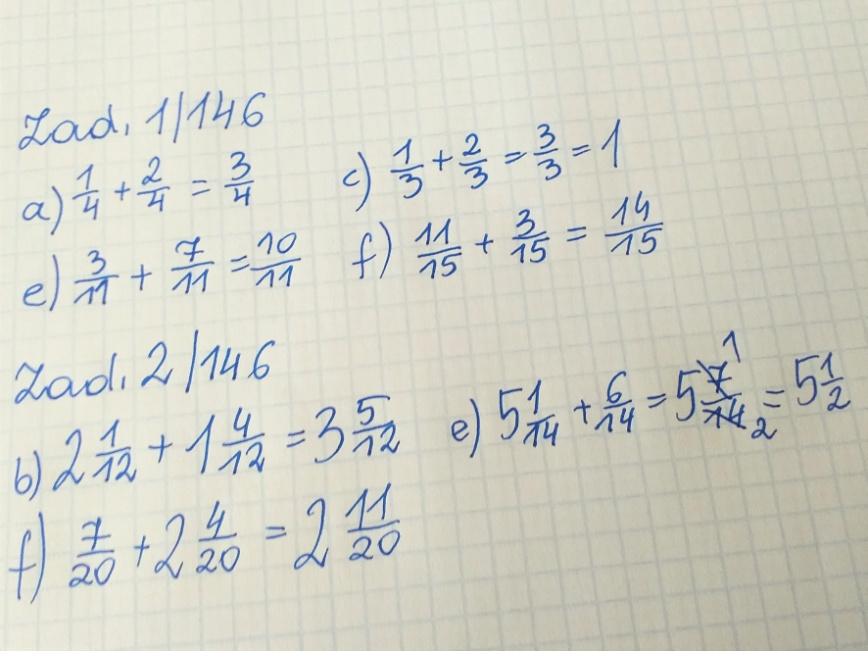 Zad. 1/146
a) 1/4 + 2/4 = 3/4 c) 1/3 + 2/3 = 3/3 = 1
e) 3/11 + 7/11 = 10/11 f) 11/15 + 3/15 = 14/15
Zad. 2/146
b) 2 1/12 + 1 4/12 = 3 5/12 e) 5 1/14 + 6/14 = 5 7/14 1 2 = 5 1/2
f) 7/20 + 2 4/20 = 2 11/20